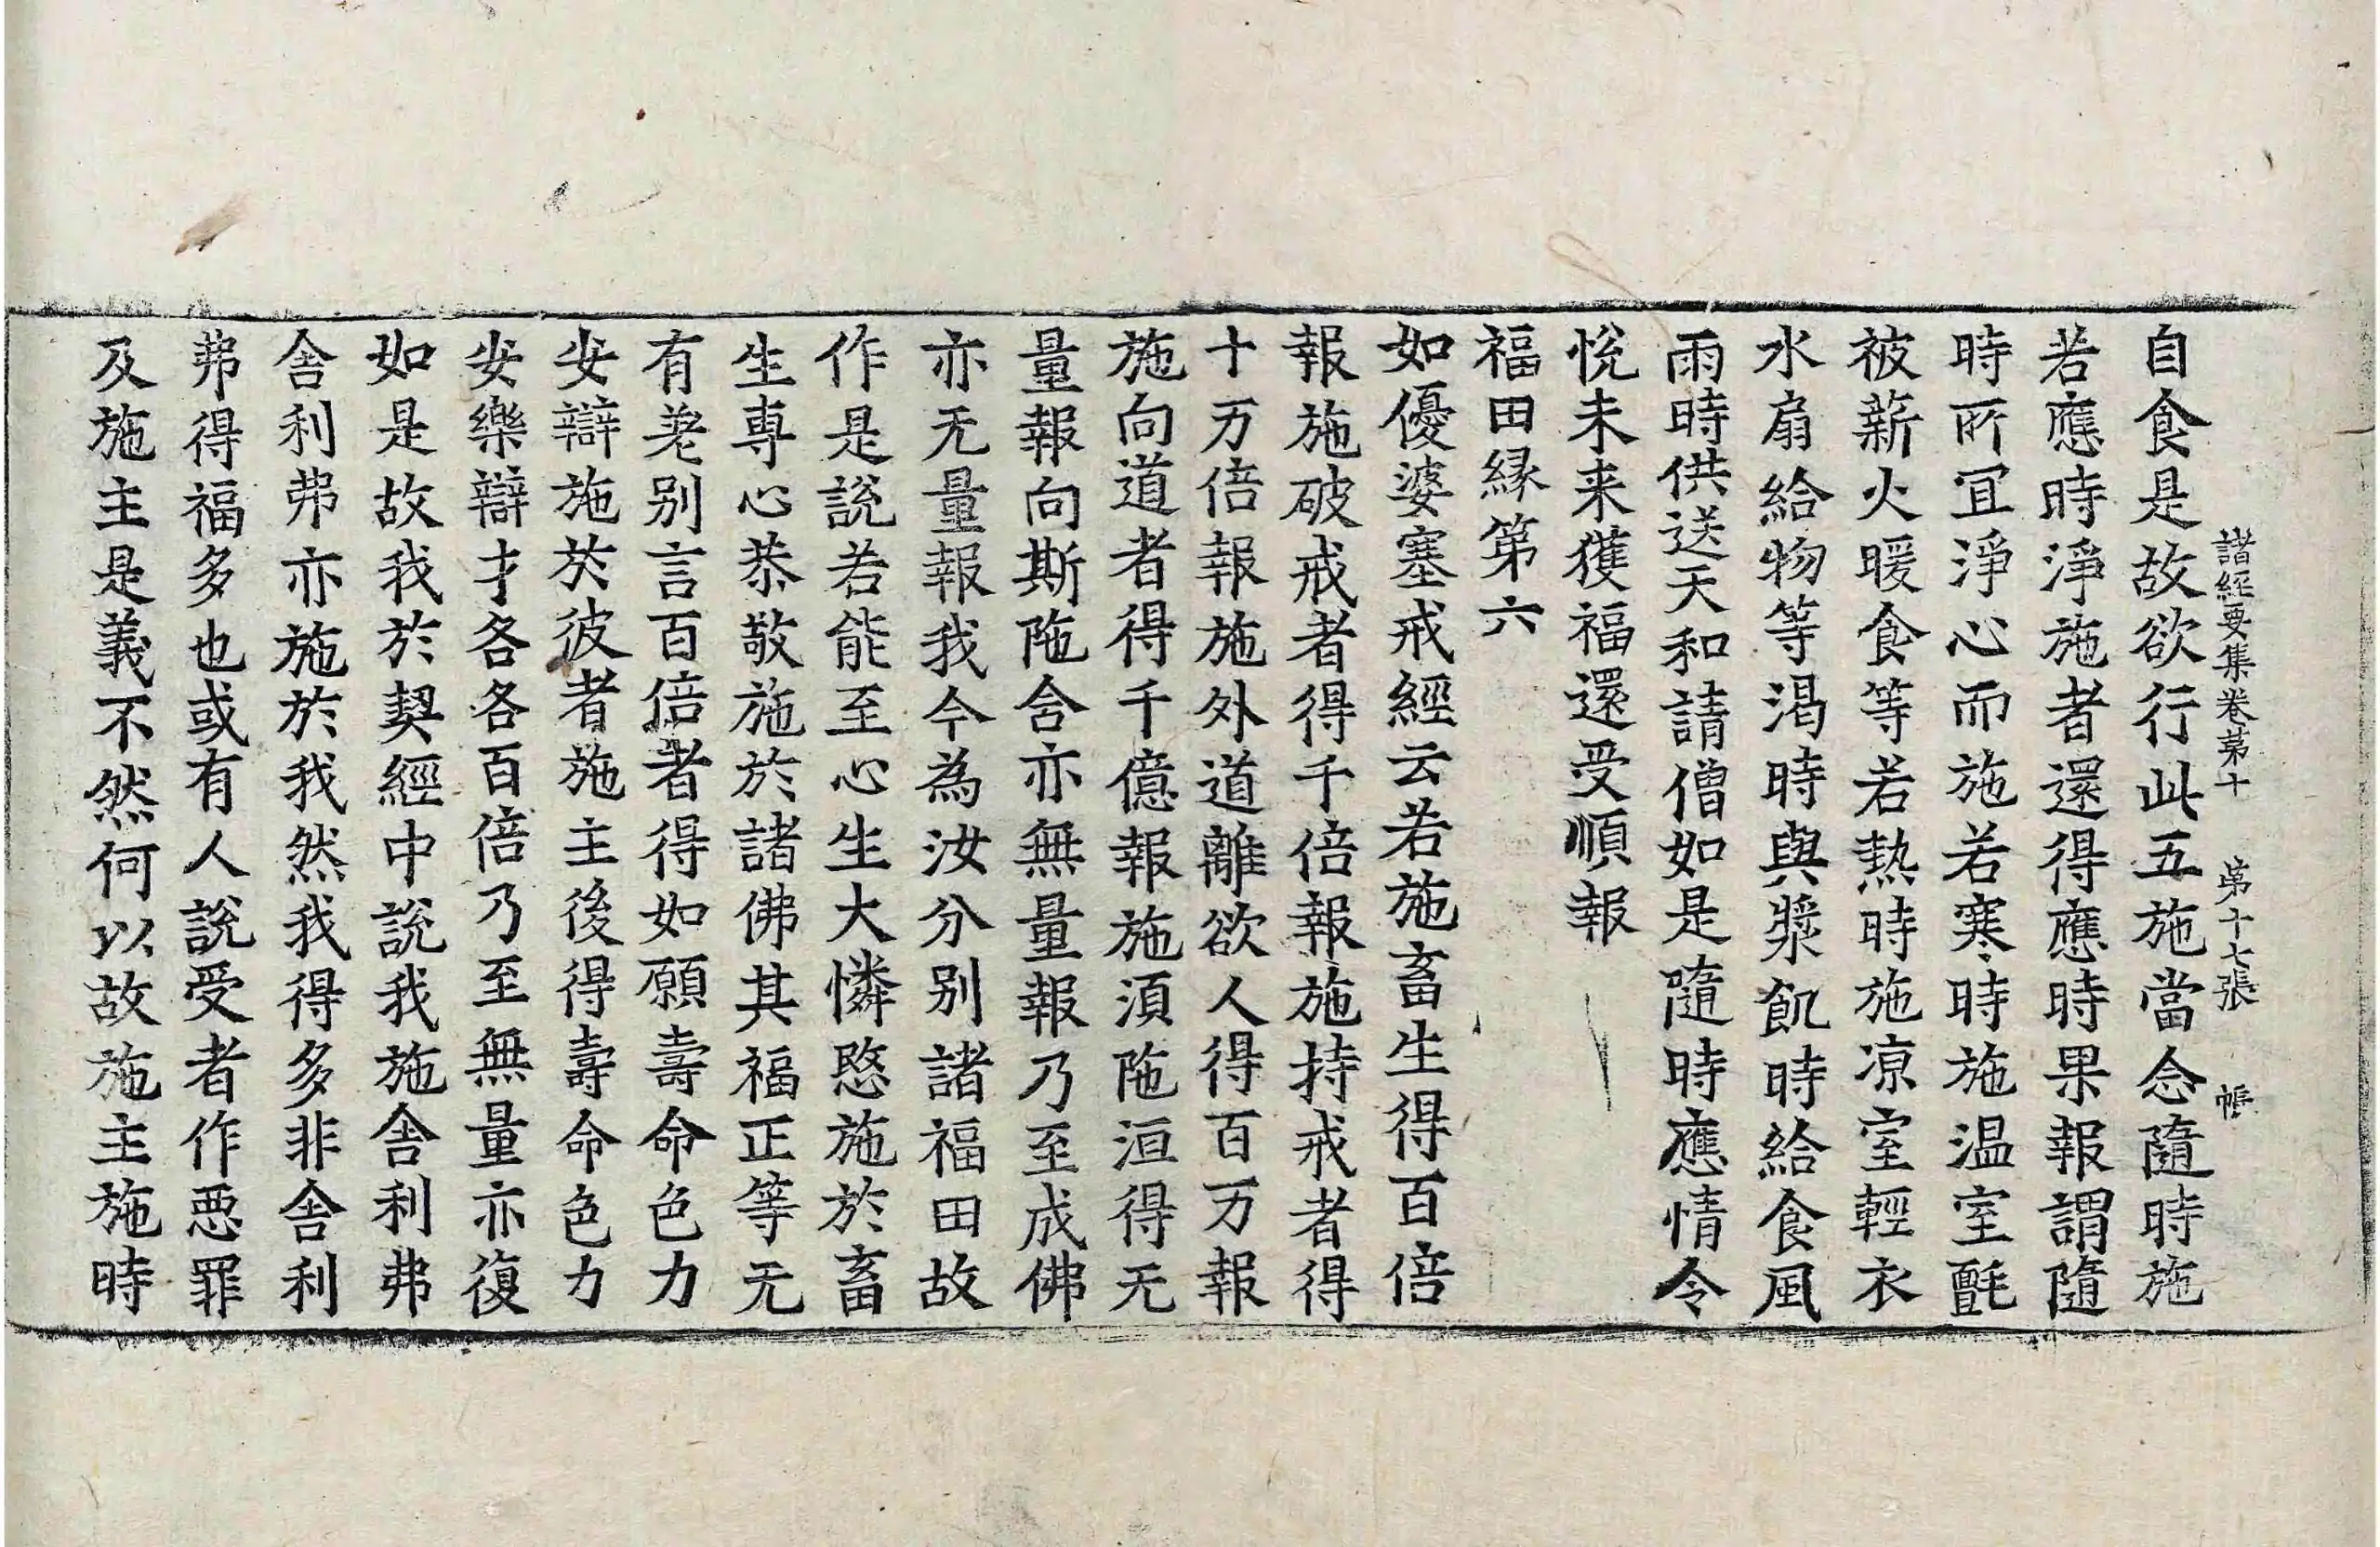 諸經要集卷第十 第十七張 帳
自食是故欲行此五施當念隨時施
若應時淨施者還得應時果報謂隨
時所冝淨心而施若寒時施温室氈
被薪火暖食等若熱時施凉室輕衣
水扇給物等渴時與漿飢時給食風
雨時供送天和請僧如是隨時應情令
悅未来獲福還受順報
福田縁第六
如優婆塞戒經云若施畜生得百倍
報施破戒者得千倍報施持戒者得
十万倍報施外道離欲人得百万報
施向道者得千億報施湏陁洹得无
量報向斯陁含亦無量報乃至成佛
亦无量報我今為汝分别諸福田故
作是說若能至心生大憐愍施於畜
生専心恭敬施於諸佛其福正等无
有差别言百倍者得如願壽命色力
安辯施於彼者施主後得壽命色力
安樂辯才各各百倍乃至無量亦復
如是故我於契經中說我施舍利弗
舎利弗亦施於我然我得多非舍利
弗得福多也或有人說受者作悪罪
及施主是義不然何以故施主施時